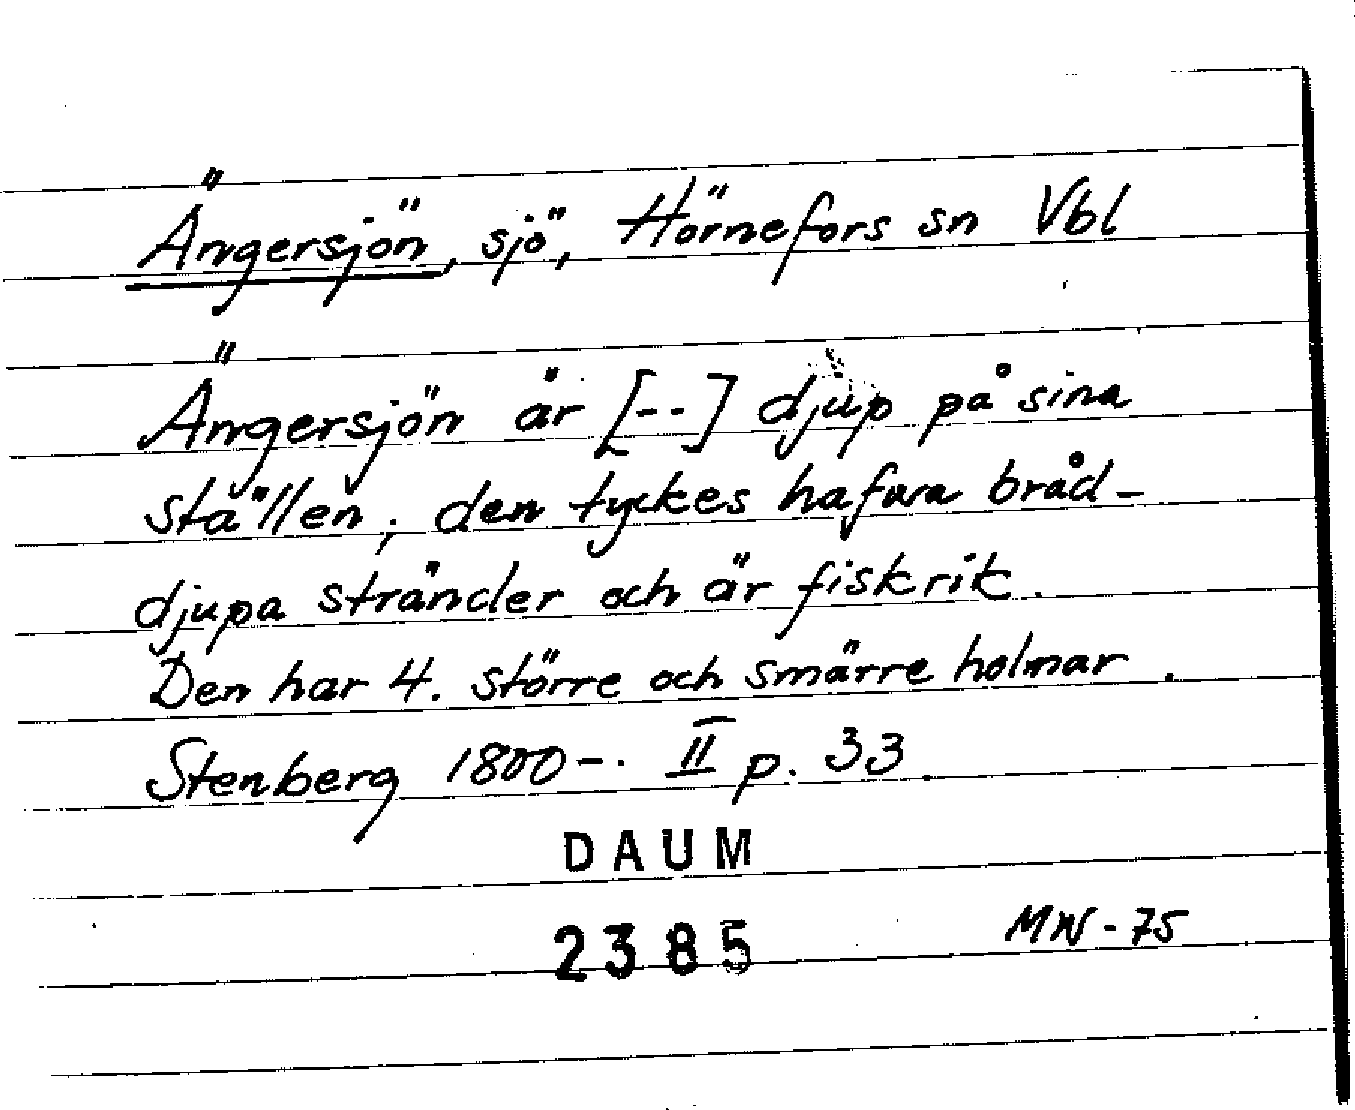 Ängersjön, sjö, Hörnefors sn Vbl
Ängersjön är [--] djup på sina
ställen, den tyckes hafwa bråd-
djupa stränder och är fiskrik.
Den har 4. större och smärre holmar.
Stenberg 1800-. II p. 33.
DAUM
2385
MW-75